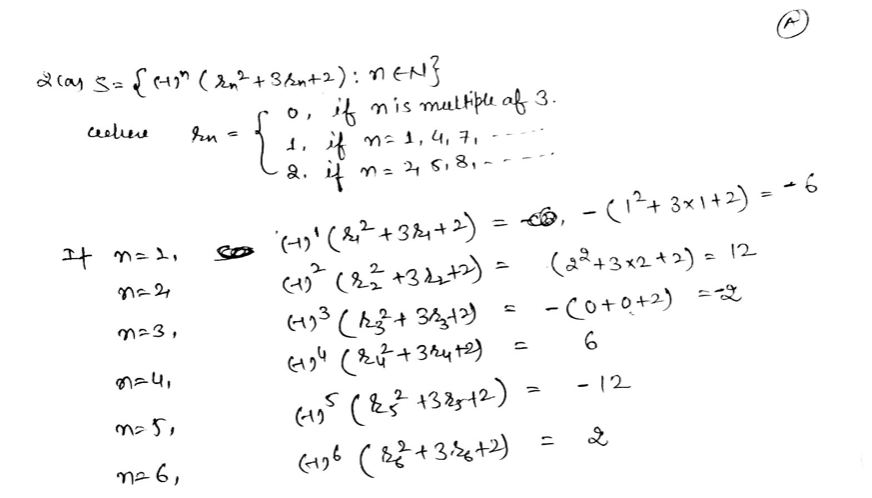 A
2(a) S = { (-1)ⁿ (rₙ² + 3rₙ + 2) : n ∈ N }
where rₙ = { 0, if n is multiple of 3.
1, if n = 1, 4, 7, ......
2, if n = 2, 5, 8, ......
If n = 1, (-1)¹ (r₁² + 3r₁ + 2) = , - (1² + 3×1 + 2) = -6
n = 2, (-1)² (r₂² + 3r₂ + 2) = (2² + 3×2 + 2) = 12
n = 3, (-1)³ (r₃² + 3r₃ + 2) = - (0 + 0 + 2) = -2
n = 4, (-1)⁴ (r₄² + 3r₄ + 2) = 6
n = 5, (-1)⁵ (r₅² + 3r₅ + 2) = -12
n = 6, (-1)⁶ (r₆² + 3.r₆ + 2) = 2